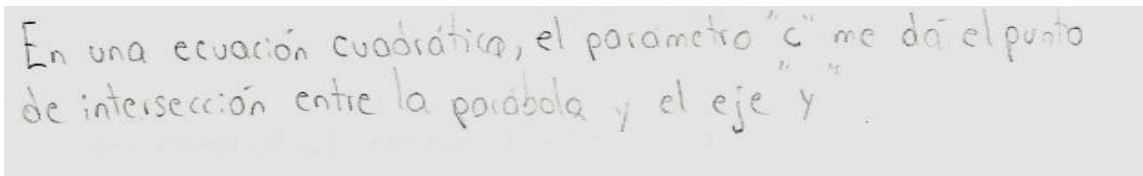 En una ecuación cuadrática, el parametro "c" me dá el punto
de intersección entre la parábola y el eje "y".